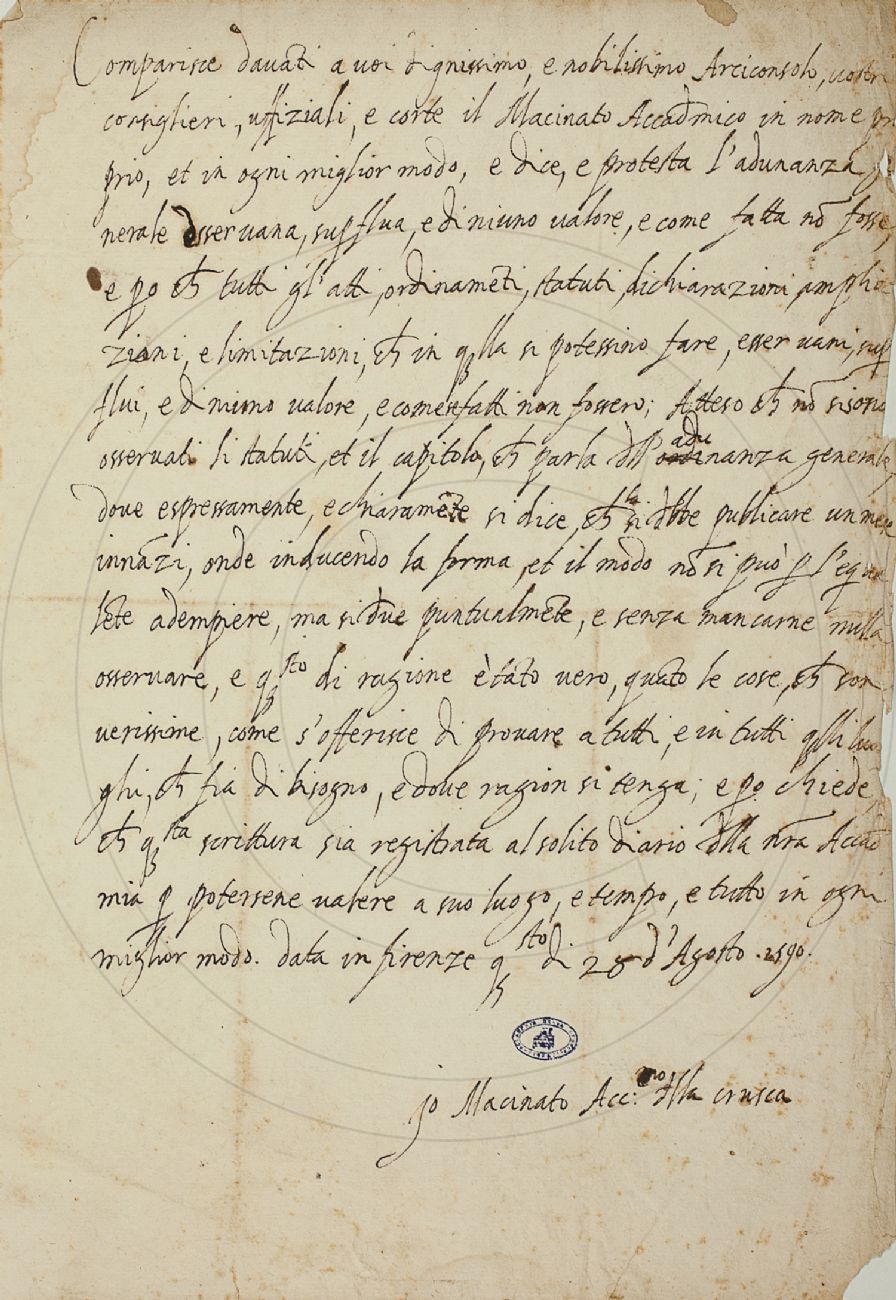 Comparisce davāti a voi dignissimo, e nobilissimo Arciconsolo, vostri
consiglieri, uffiziali, e corte il Macinato Accadmico in nome pro
prio, et in ogni miglior modo, e dice, e protesta l'adunanza ge
nerale esser vana, supflua, e di niuno valore, e come fatta nō fosse,
e po ch tutti gl'atti, ordinamēti, statuti, dichiarazioni, amplia
zioni, e limitazioni, ch in qlla si potessino fare, esser vani, sup
flui, e di niuno valore, e come fatti non fossero; Atteso ch nō si sono
osservati li statuti, et il capitolo, ch parla dll' adunanza generale,
dove espressamente, e chiaramēte si dice, ch la si dbbe publicare un mese
innāzi, onde inducendo la forma, et il modo nō si può p l'equa
lēte adempiere, ma si due puntualmēte, e senza mancarne nulla
osservare, e qsto di ragione è tāto vero, quāto le cose, ch son
verissime, come s'offerisce di provare a tutti, e in tutti qlli luo
ghi, ch fia di bisogno, e dove ragion si tenga; e po chiede,
ch qsta scrittura sia registrata al solito diario dlla nr̄a Accad
mia p potersene valere a suo luogo, e tempo, e tutto in ogni
miglior modo. data in firenze qsto di 28 d'Agosto .1590.
jo Macinato Acc:mo dlla crusca